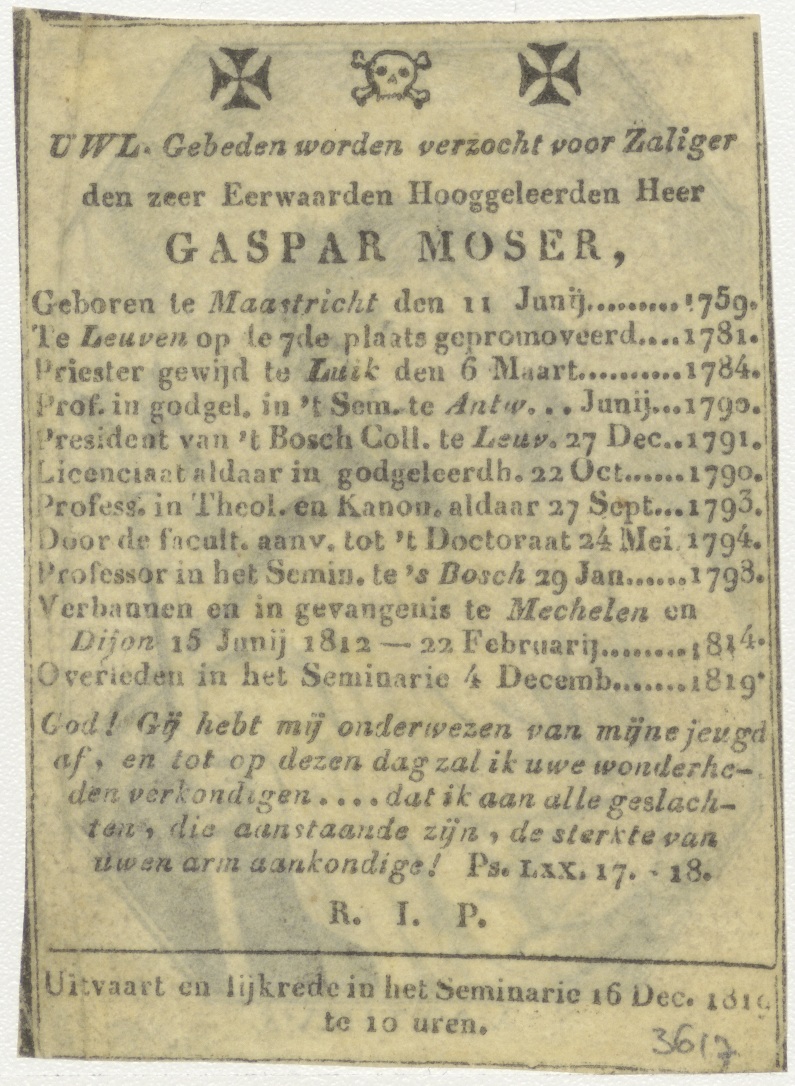 UWL. Gebeden worden verzocht voor Zaliger
den zeer Eerwaarden Hooggeleerden Heer
GASPAR MOSER,
Geboren te Maastricht den 11 Junij.......... 1759.
Te Leuven op de 7de plaats gepromoveerd.... 1781.
Priester gewijd te Luik den 6 Maart.......... 1784.
Prof. in godgel. in 't Sem. te Antw... Junij... 1790.
President van 't Bosch Coll. te Leuv. 27 Dec.. 1791.
Licenciaat aldaar in godgeleerdh. 22 Oct...... 1790.
Profess. in Theol. en Kanon. aldaar 27 Sept... 1793.
Door de facult. aanv. tot 't Doctoraat 24 Mei. 1794.
Professor in het Semin. te 's Bosch 29 Jan...... 1798.
Verbannen en in gevangenis te Mechelen en
Dijon 15 Junij 1812 — 22 Februarij......... 1814.
Overleden in het Seminarie 4 Decemb....... 1819.
God! Gij hebt mij onderwezen van mijne jeugd
af, en tot op dezen dag zal ik uwe wonderhe-
den verkondigen.... dat ik aan alle geslach-
ten, die aanstaande zijn, de sterkte van
uwen arm aankondige! Ps. LXX. 17. - 18.
R. I. P.
Uitvaart en lijkrede in het Seminarie 16 Dec. 1819
te 10 uren.
3617